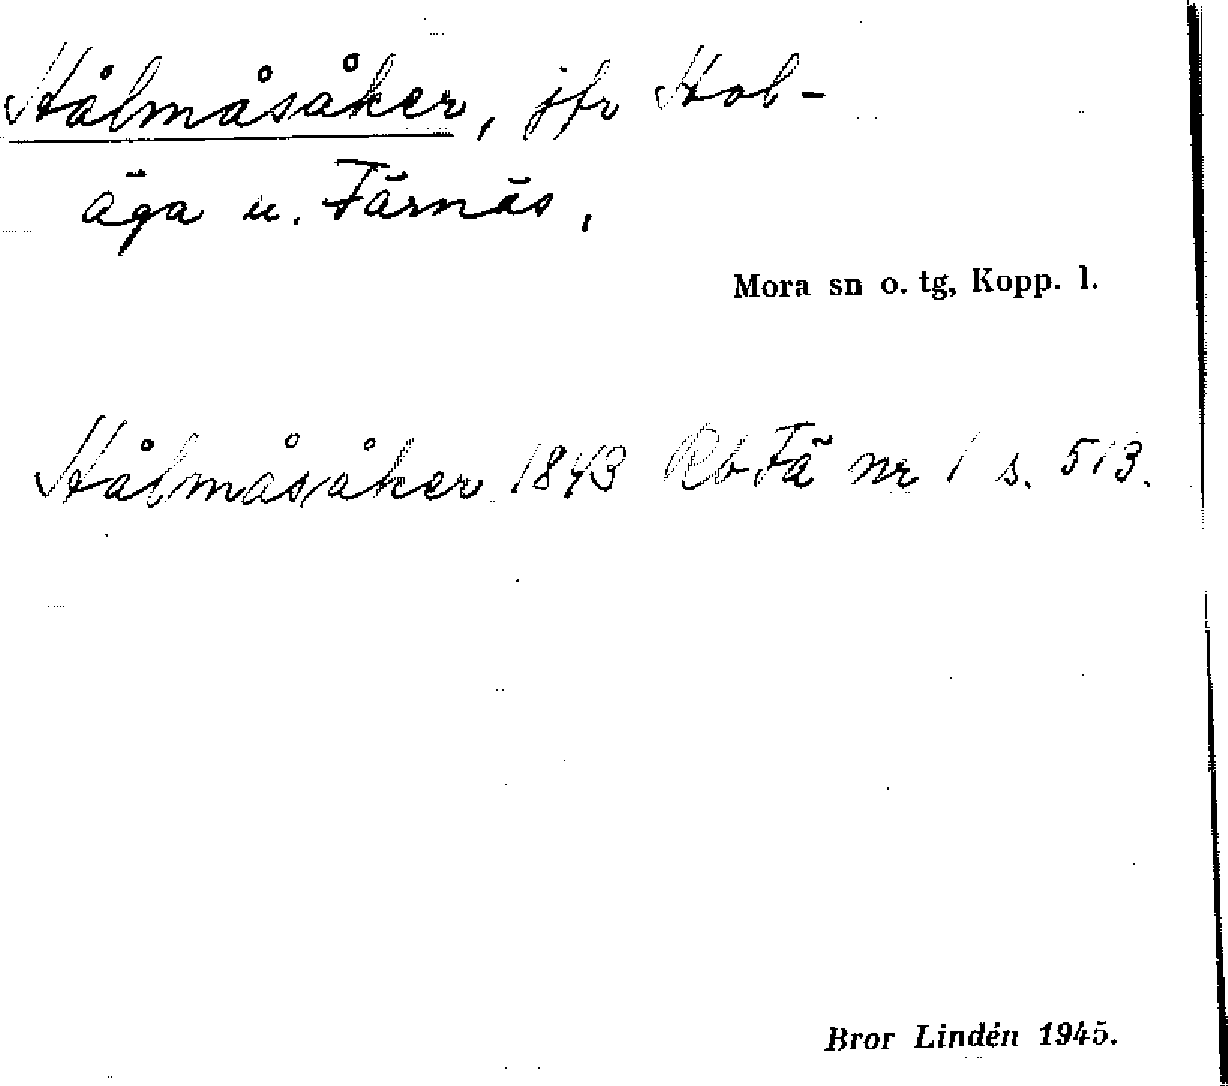 Hålmåsåker, jfr Hol-
äga u. Färnäs,
Mora sn o. tg, Kopp. l.
Hålmåsåker 1843 Rb Fä nr 1 s. 513.
Bror Lindén 1945.